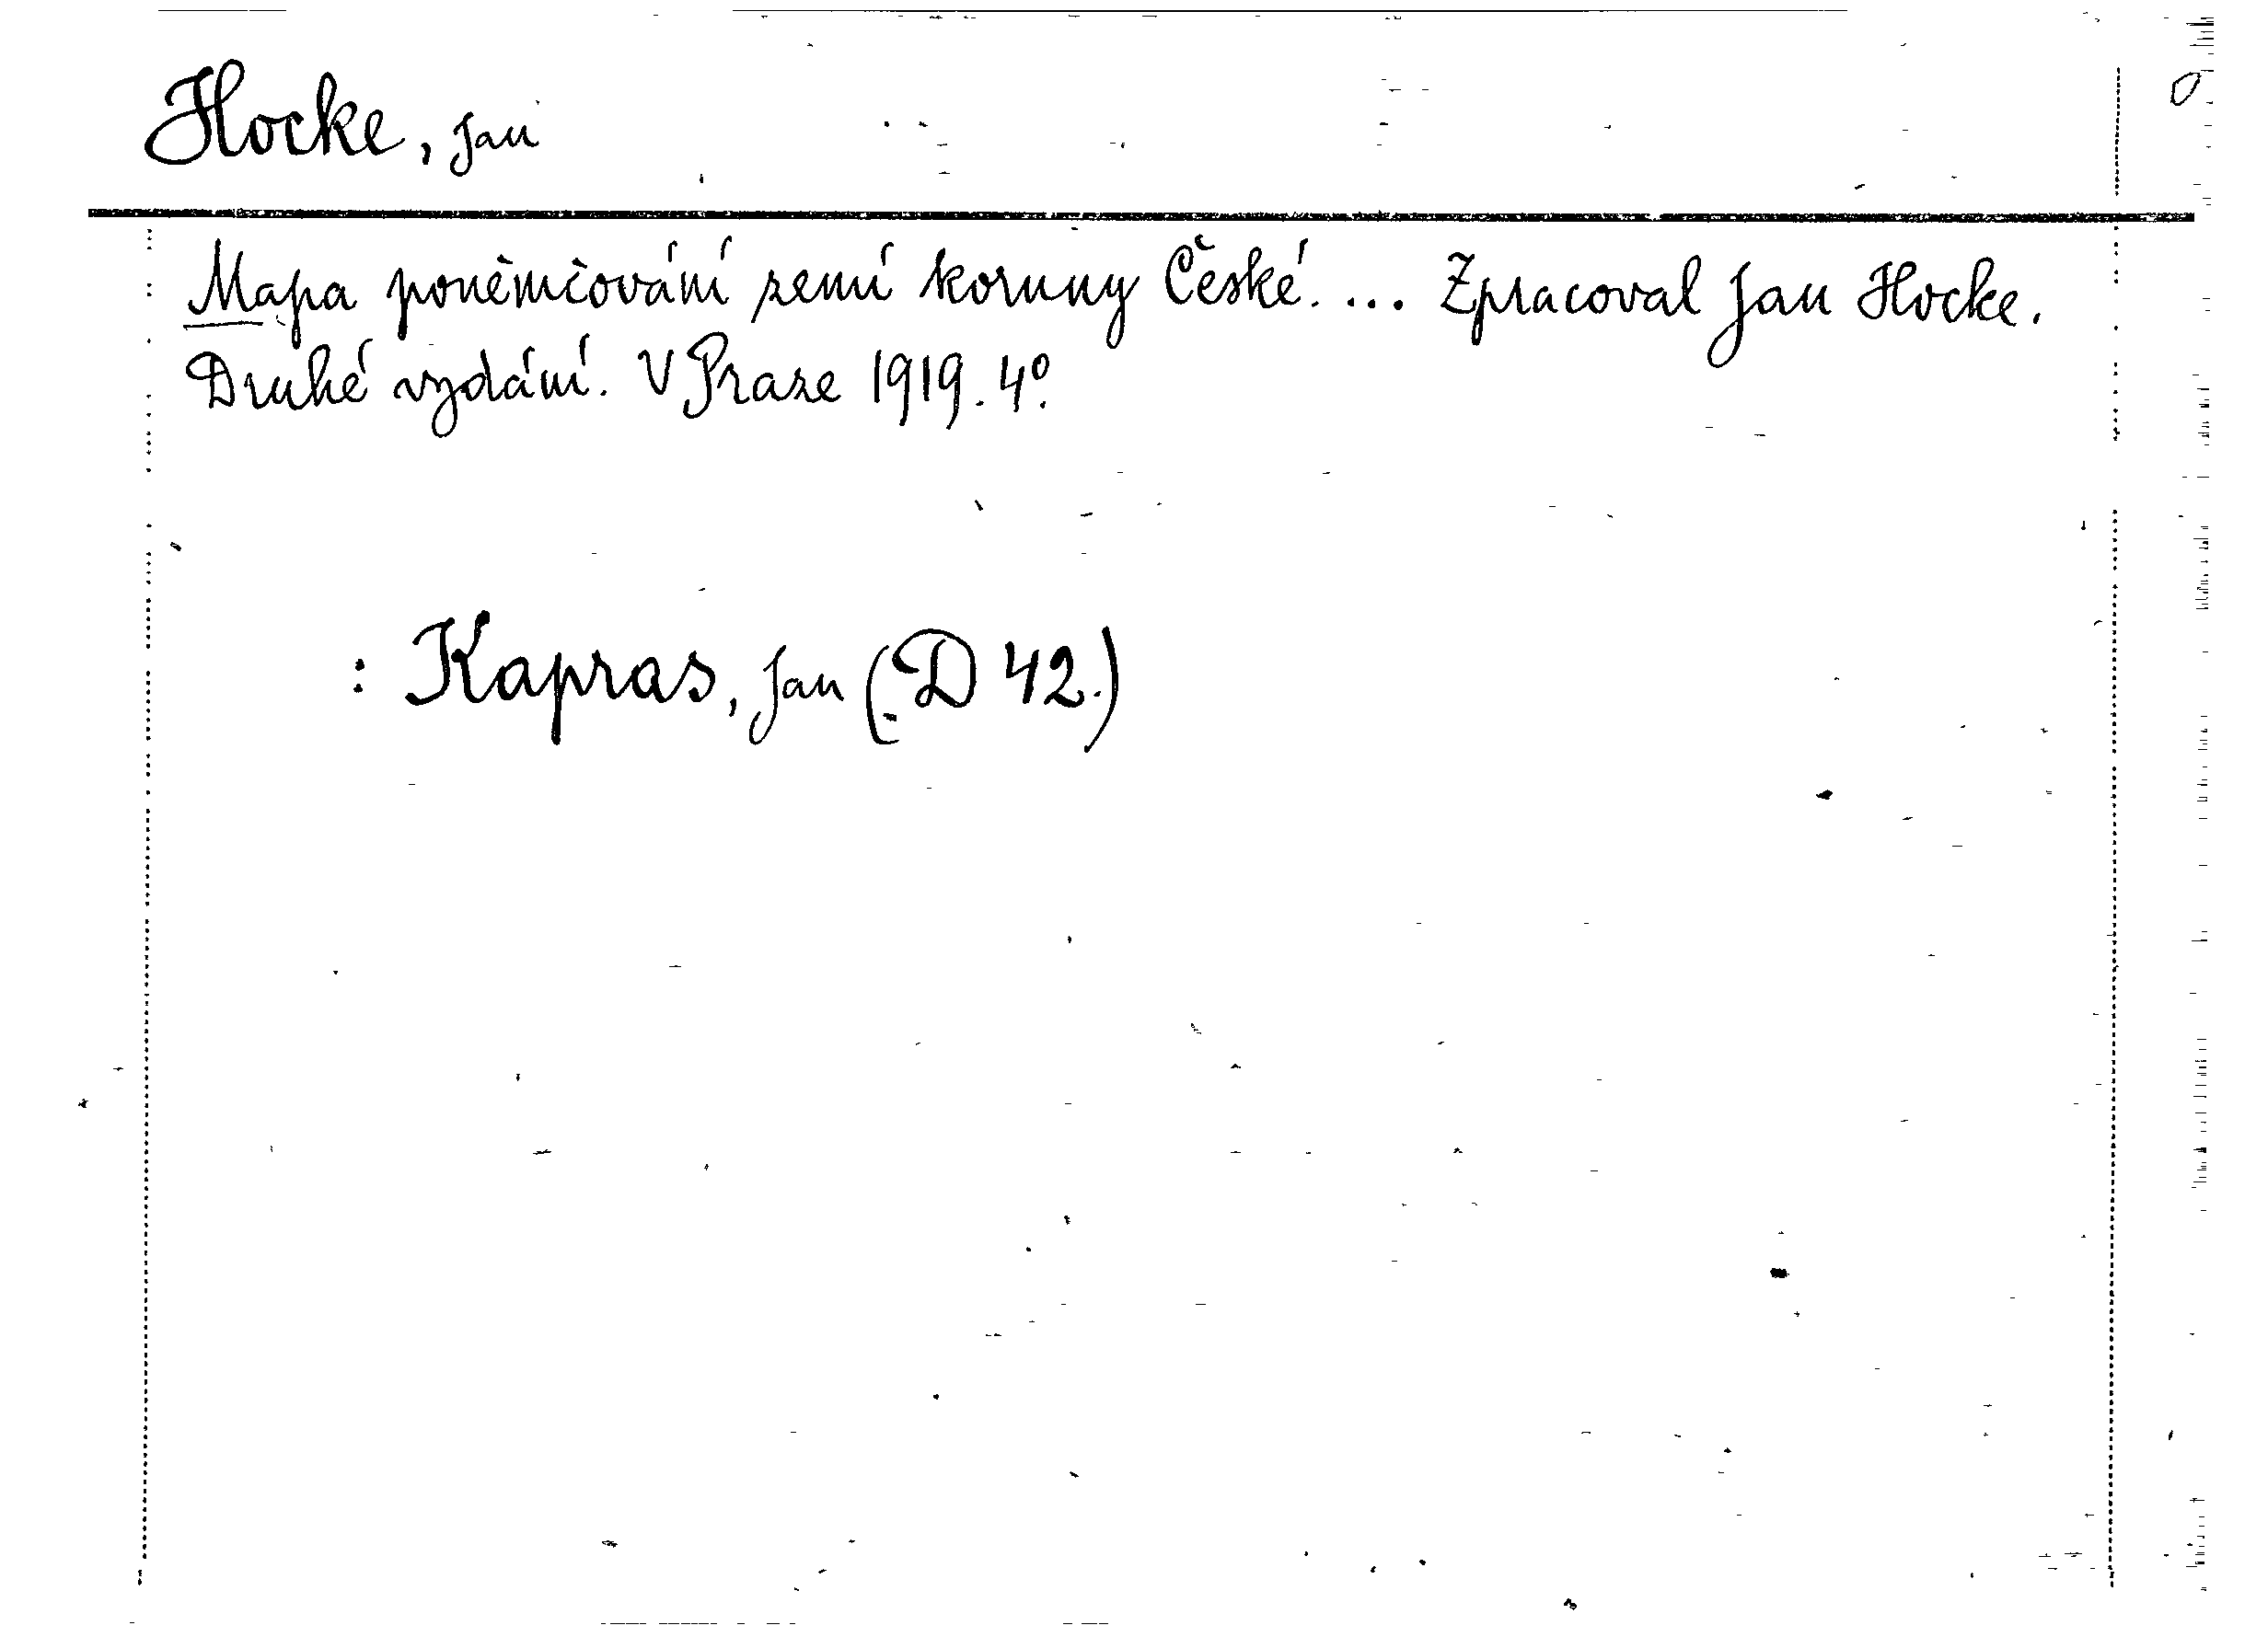 Hocke, Jan
Mapa poněmčování zemí koruny České. ... Zpracoval Jan Hocke.
Druhé vydání. V Praze 1919. 4°.
: Kapras, Jan (D 42.)